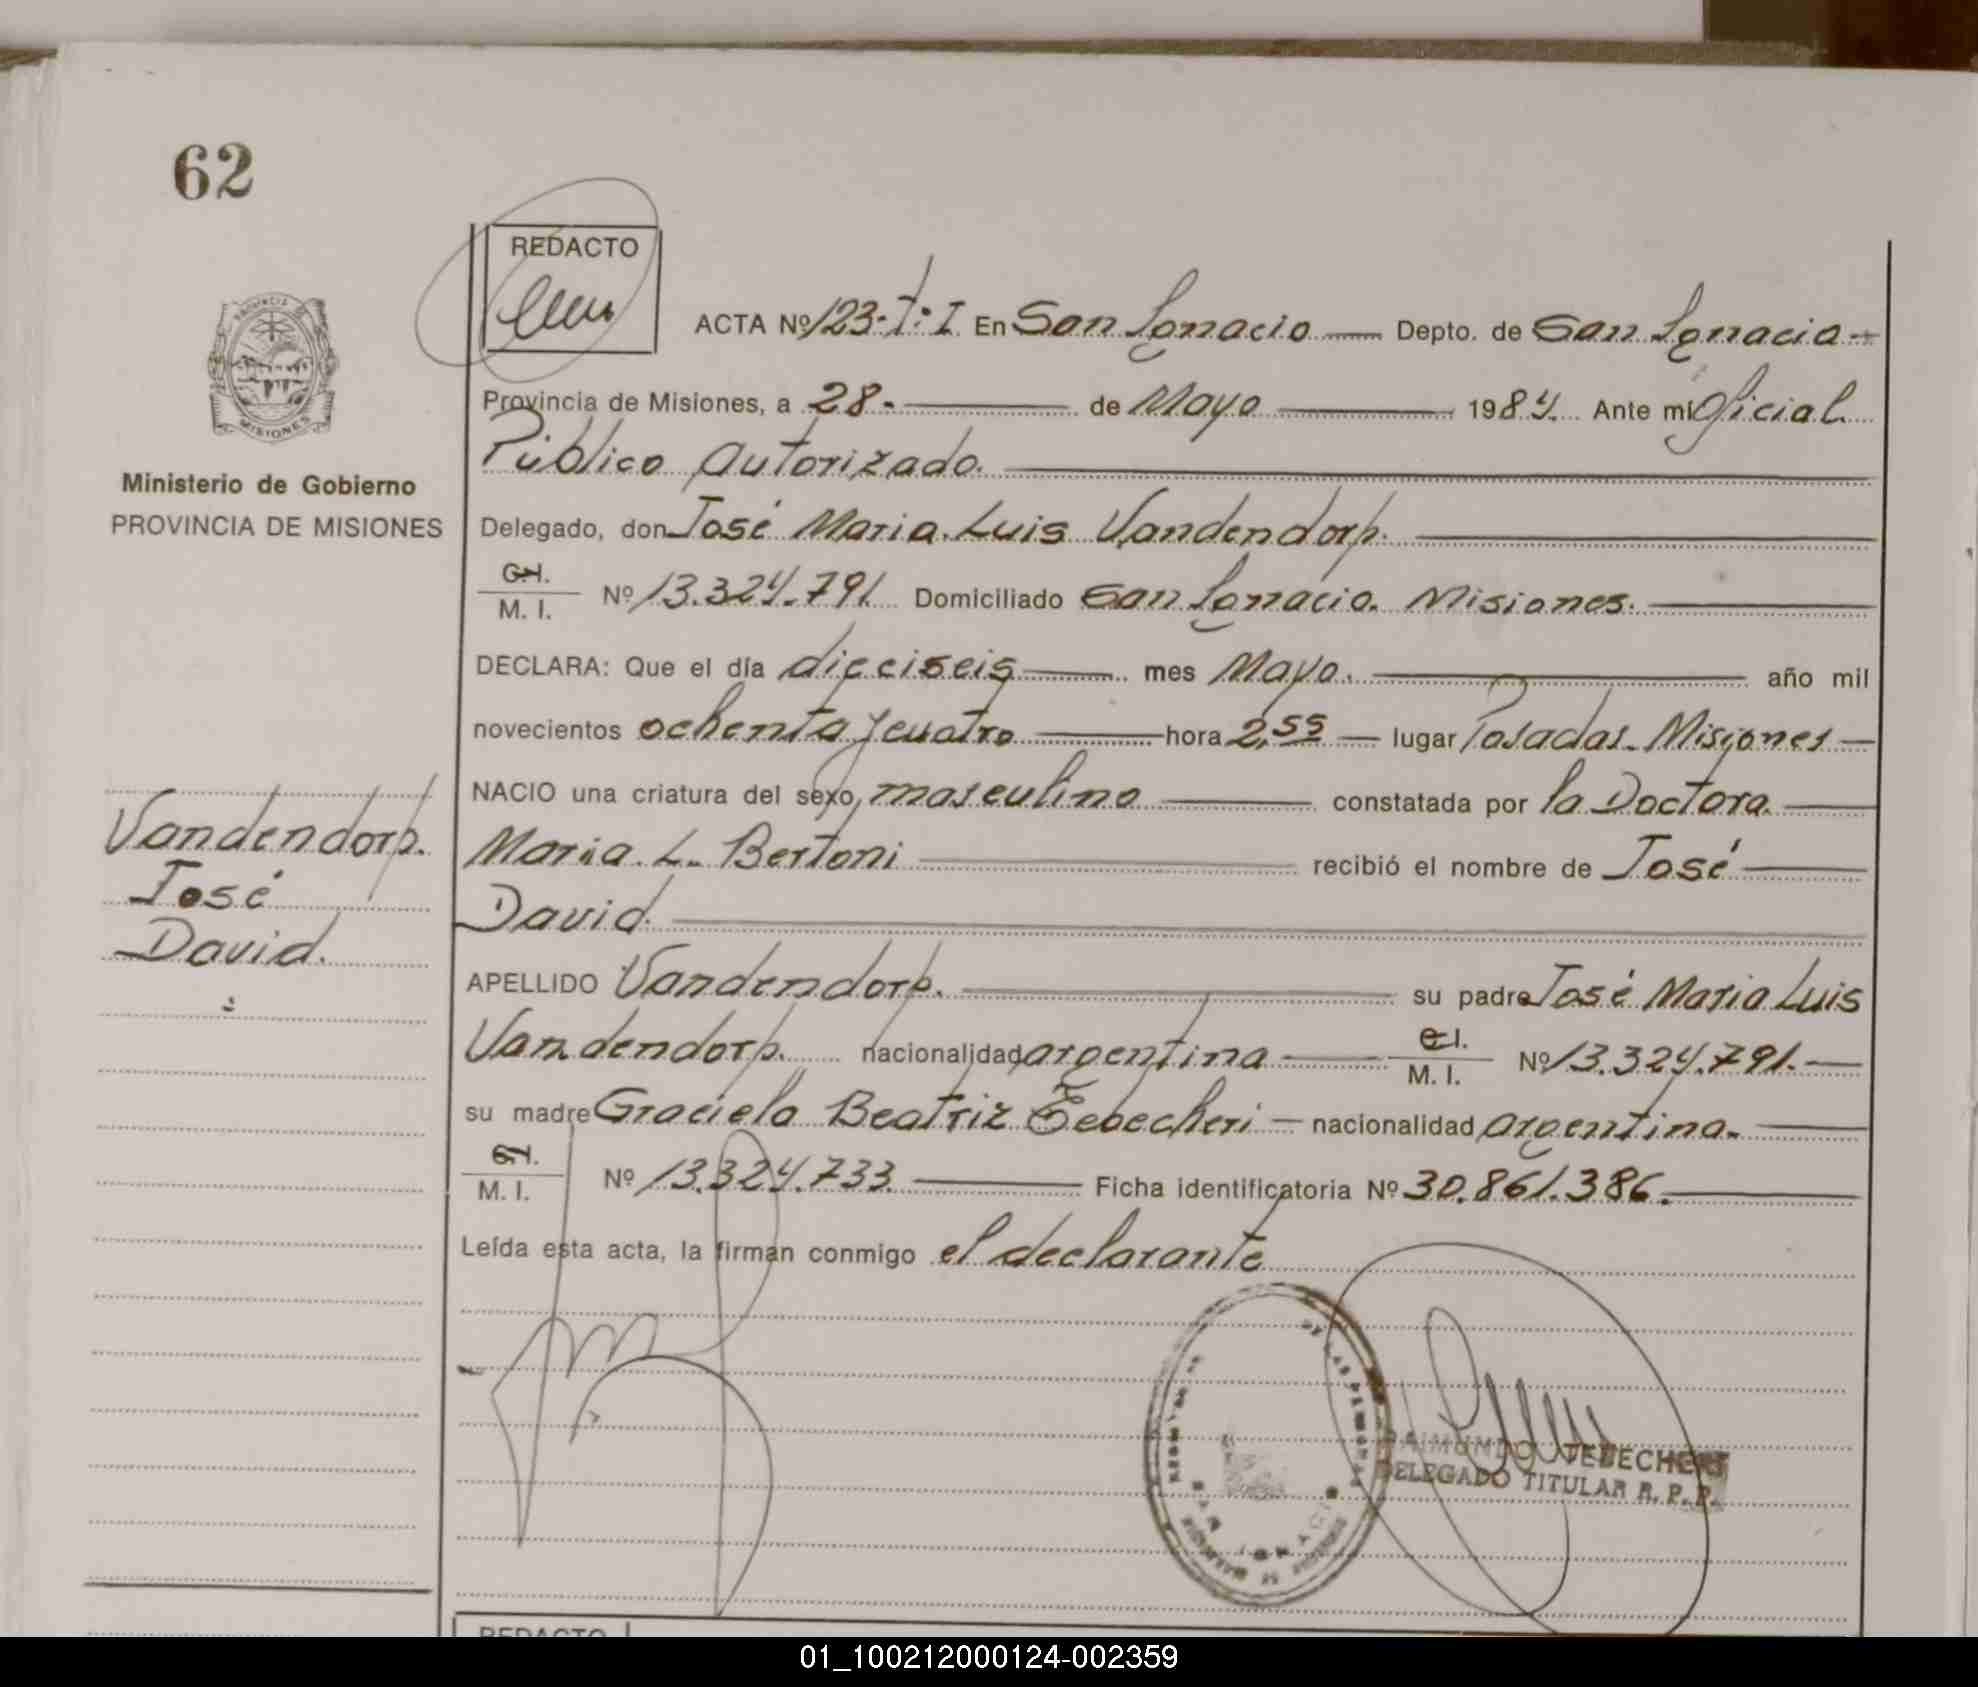 62
REDACTO
ACTA Nº 123-T:I En San Ignacio Depto. de San Ignacio
Provincia de Misiones, a 28 de Mayo 1984. Ante mí Oficial
Público Autorizado.
Ministerio de Gobierno
PROVINCIA DE MISIONES
Delegado, don José Maria Luis Vandendorp.
C.I.
M. I. Nº 13.324.791. Domiciliado San Ignacio. Misiones.
DECLARA: Que el día dieciseis mes Mayo. año mil
novecientos ochenta y cuatro hora 2,55 lugar Posadas. Misiones
NACIO una criatura del sexo masculino constatada por la Doctora.
Maria L. Bertoni recibió el nombre de José
David.
Vandendorp.
José
David.
APELLIDO Vandendorp. su padre José Maria Luis
Vandendorp. nacionalidad argentina C.I.
M. I. Nº 13.324.791.
su madre Graciela Beatriz Tebecheri nacionalidad argentina.
C.I.
M. I. Nº 13.324.733. Ficha identificatoria Nº 30.861.386.
Leída esta acta, la firman conmigo el declarante
PROVINCIA
MISIONES
DE LAS PERSONAS
SAN IGNACIO
RAIMUNDO TEBECHERI
DELEGADO TITULAR R. P. P.
REDACTO
01_100212000124-002359